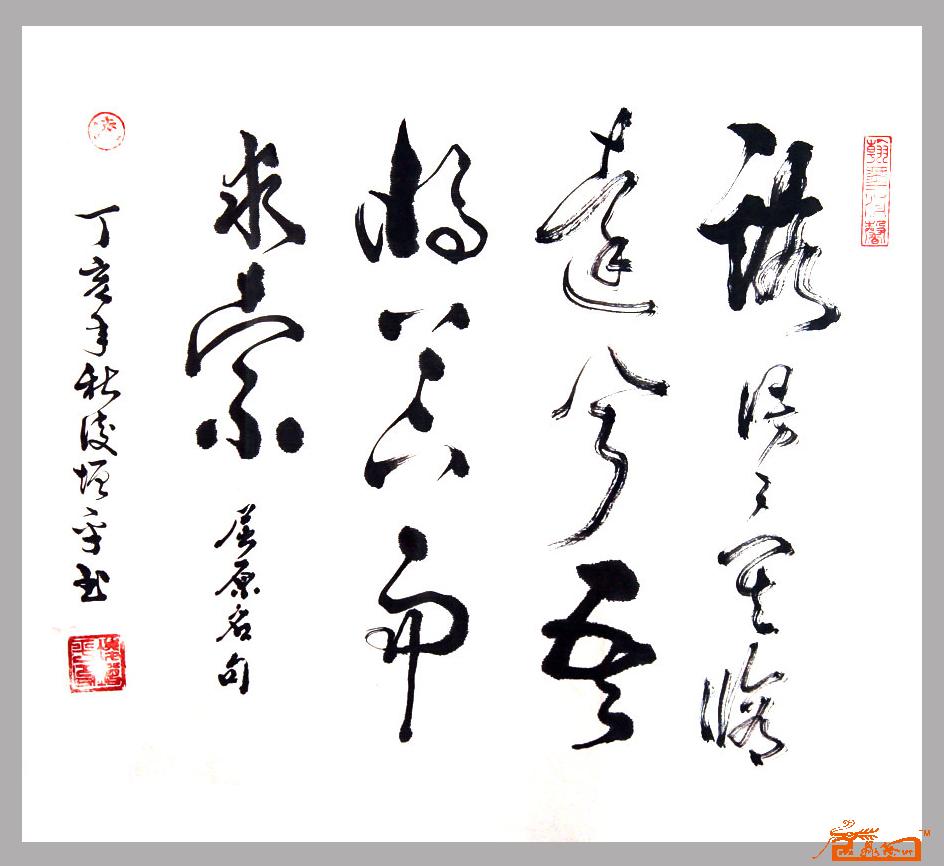 路漫漫其脩
遠兮吾
将上下而
求索 屈原名句
丁亥年秋